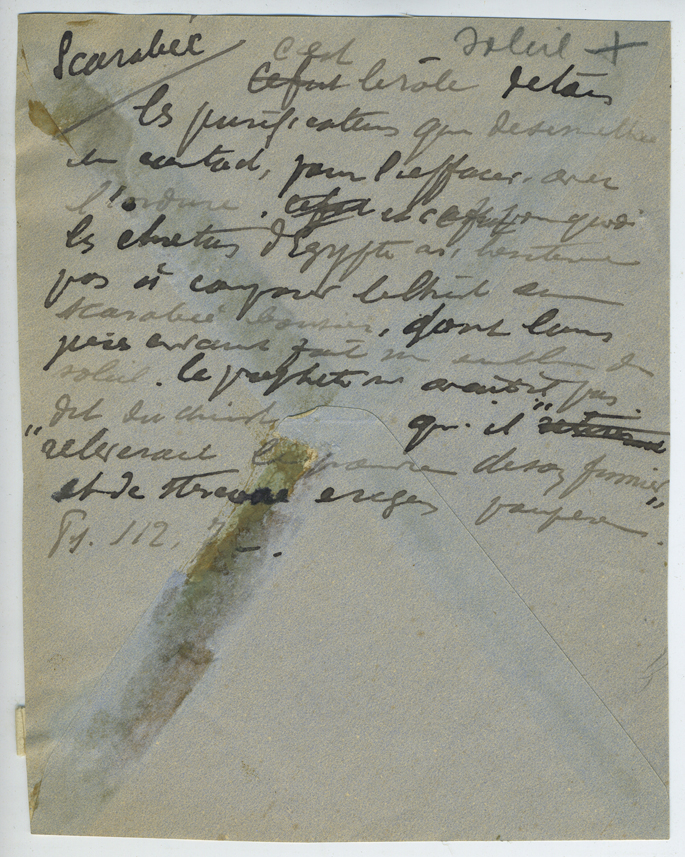 Scarabée soleil +
c'est
Ce fut le rôle de tous
les purificateurs que de se mettre
en contact, pour l'effacer, avec
l'ordure, c'est et ce fut pourquoi
les chrétiens d'Égypte n'hésitèrent
pas à comparer le Christ au
scarabée bousier, dont leurs
pères avaient fait un emblème du
soleil. Le prophète n'avait-il pas
dit du Christ qu'il
"relèverait le pauvre de son fumier"
et de stercore erigens pauperem.
Ps. 112, 7 –.